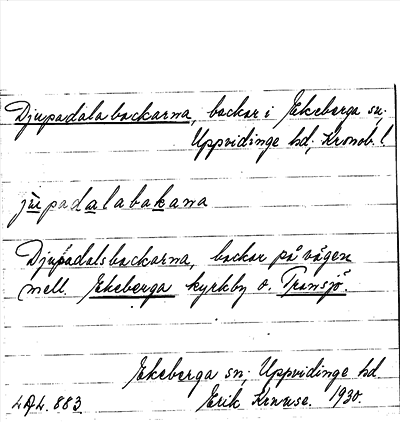 Djupadala backarna, backar i Ekeberga sn;
Uppvidinge hd, Kronob. l
jùpadalabakana
Djupadalsbackarna, backar på vägen
mell. Ekeberga kyrkby o. Transjö.
Ekeberga sn; Uppvidinge hd.
LAL. 883. Erik Kruuse. 1930.